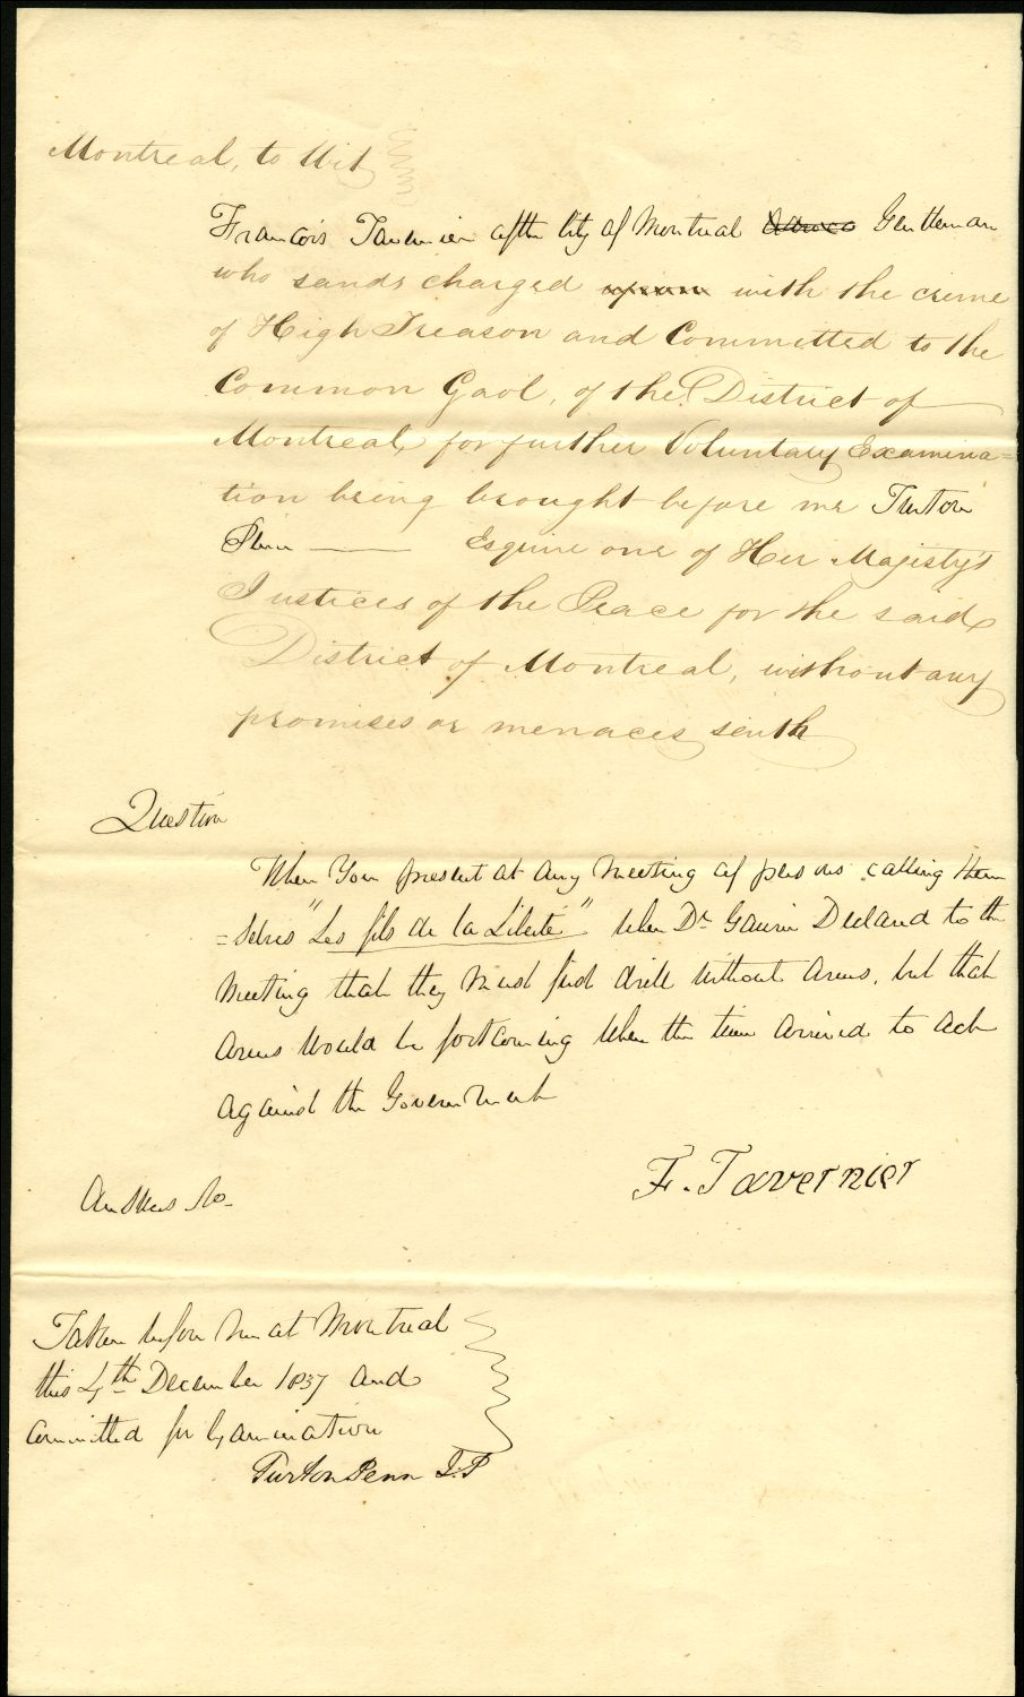 Montreal, to Wit
Francois Tavernier of the City of Montreal Gentleman
who sands charged upon with the crime
of High Treason and Committed to the
Common Gaol, of the District of
Montreal, for further Voluntary Examina=
tion being brought before me Turton
Penn Esquire one of Her Majesty's
Justices of the Peace for the said
District of Montreal, without any
promises or menaces seith
Question
When You present at any meeting of persons calling them
=selves "Les fils de la Liberté" when Dr Gauvin Declared to the
Meeting that they must first drill without arms, but that
arms would be forthcoming when the time arrived to act
against the Government
F. Tavernier
Answers No-
Taken before me at Montreal
this 4th December 1837 and
Committed for Examination
Turton Penn J.P